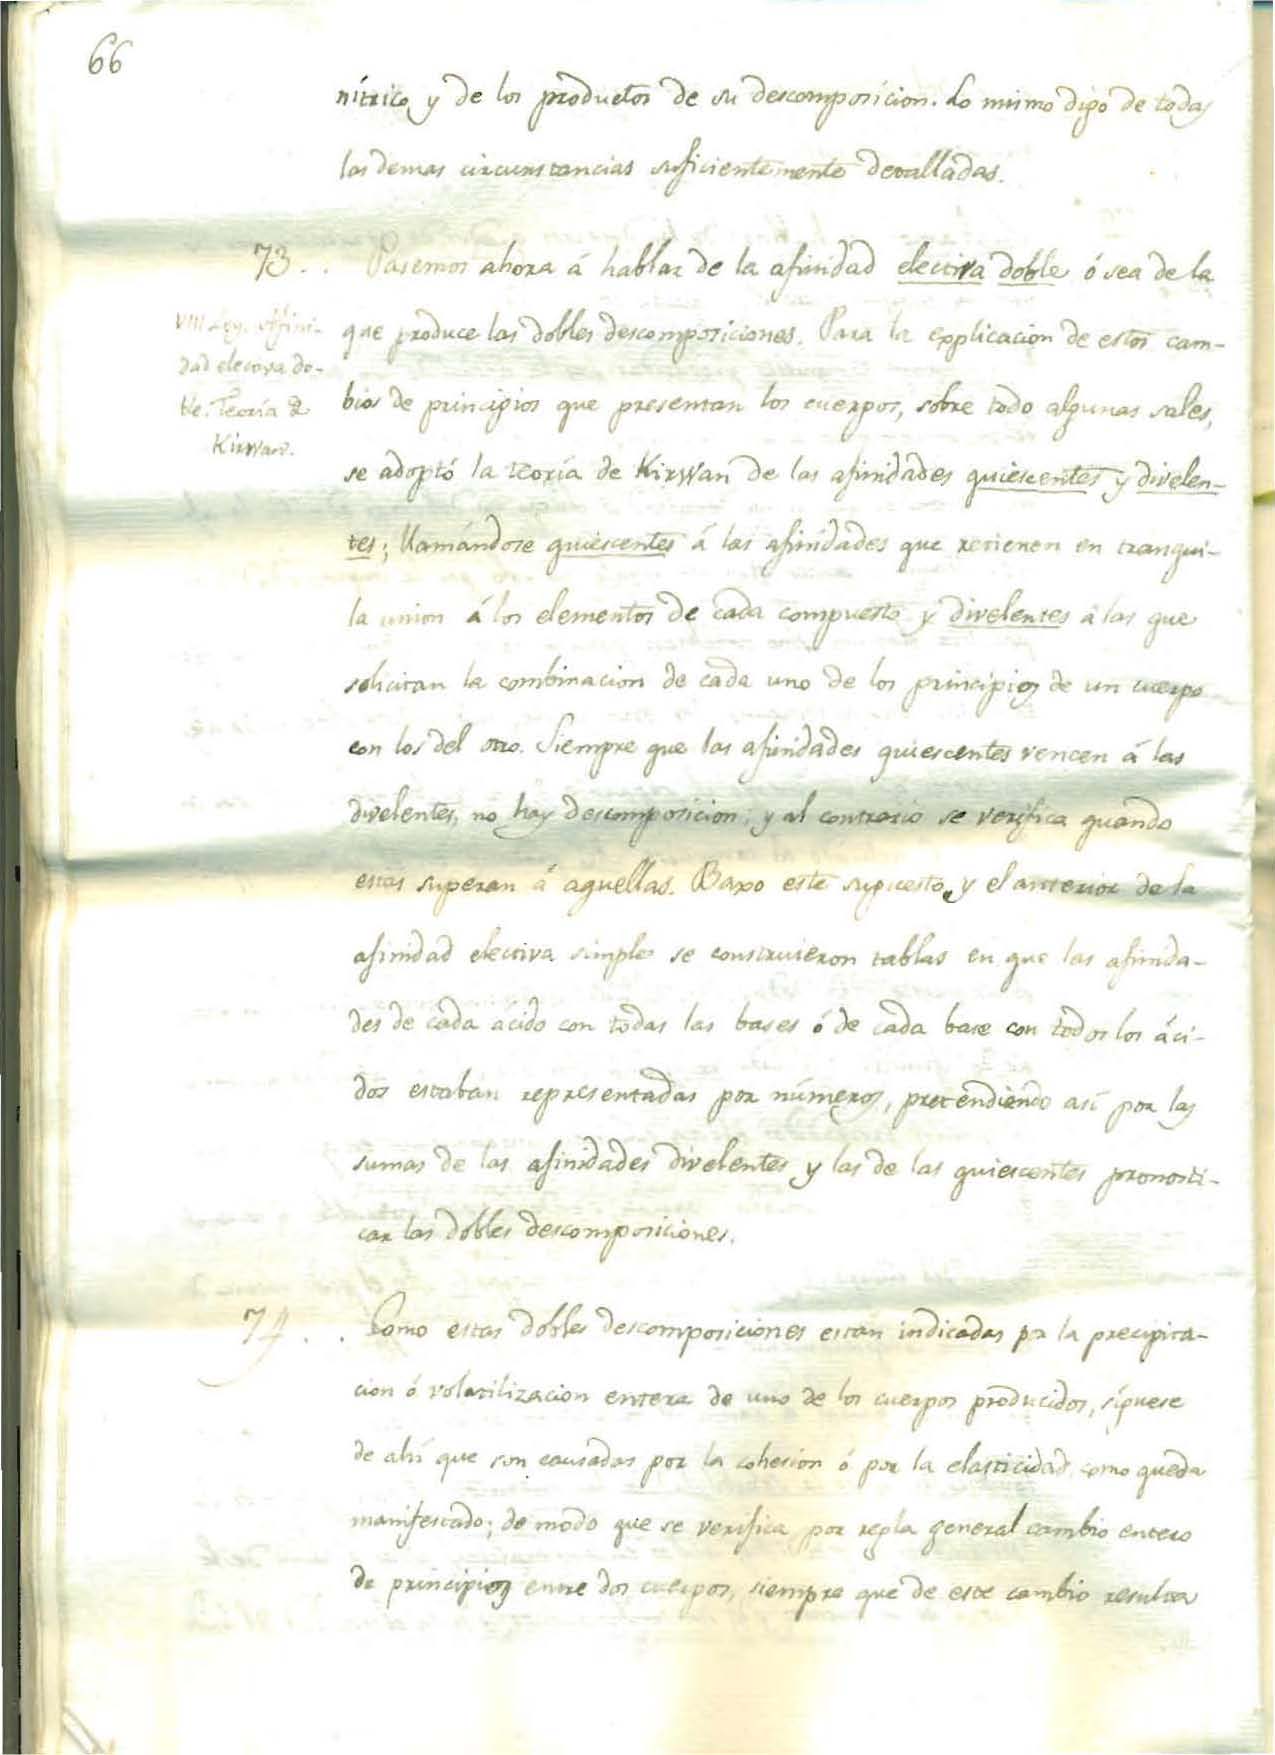 66
nítrico, y de los productos de su descomposicion. Lo mismo digo de todas
las demas circunstancias suficientemente detalladas.
73.. Pasemos ahora á hablar de la afinidad electiva doble ó sea de la
VIII Ley. Afini-
dad electiva do-
ble: Teoría de
Kirwan.
que produce las dobles descomposiciones. Para la explicacion de estos cam-
bios de principios que presentan los cuerpos, sobre todo algunas sales,
se adoptó la teoría de Kirwan de las afinidades quiescentes y divelen-
tes; llamándose quiescentes á las afinidades que retienen en tranqui-
la union á los elementos de cada compuesto y divelentes á las que
solicitan la combinacion de cada uno de los principios de un cuerpo
con los del otro. Siempre que las afinidades quiescentes vencen á las
divelentes, no hay descomposicion; y al contrario se verifica quando
estas superan á aquellas. Baxo este supuesto, y el anterior de la
afinidad electiva simple se construieron tablas en que las afinida-
des de cada ácido con todas las bases ó de cada base con todos los áci-
dos estaban representadas por números, pretendiendo así por las
sumas de las afinidades divelentes y las de las quiescentes pronosti-
car las dobles descomposiciones.
74.. Como estas dobles descomposiciones estan indicadas por la precipita-
cion ó volatilizacion entera de uno de los cuerpos producidos, síguese
de ahí que son causadas por la cohesion ó por la elasticidad como queda
manifestado; de modo que se verifica por regla general cambio entero
de principios entre dos cuerpos, siempre que de este cambio resulta